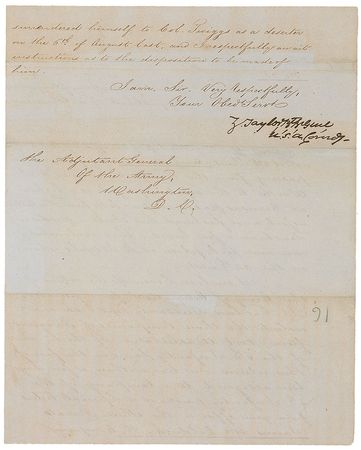 surrendered himself to Col. Twiggs as a deserter
on the 5th of August last, and I respectfully await
instructions as to the disposition to be made of
him.
I am Sir, Very Respectfully,
Your Obdt Servt
Z. Taylor
U.S.A. Comdg
The Adjutant General
Of the Army,
Washington,
D. C.
91